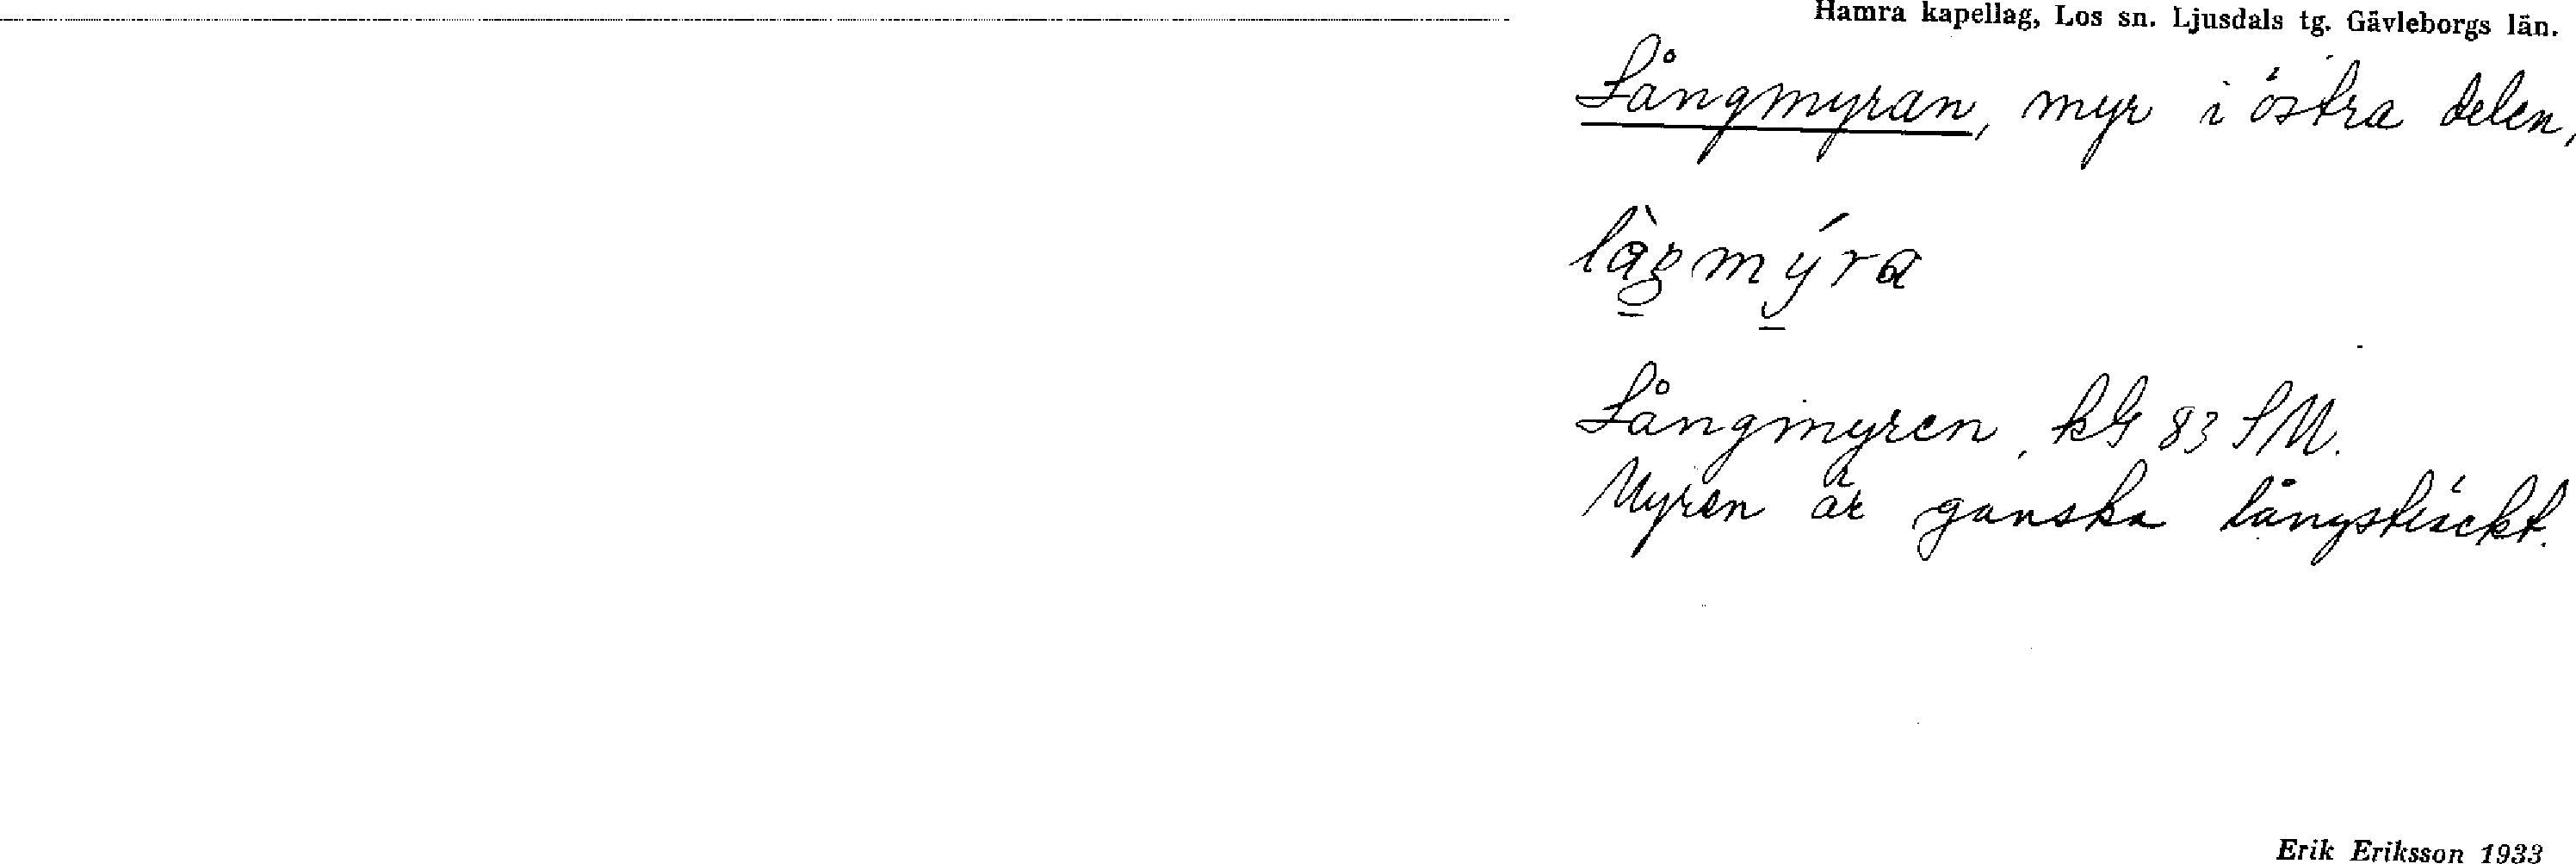 Hamra kapellag, Los sn. Ljusdals tg. Gävleborgs län.
Långmyran, myr i östra delen,
làgmýra
Långmyren, kG 83 SM.
Myren är ganska långsträckt.
Erik Eriksson 1933